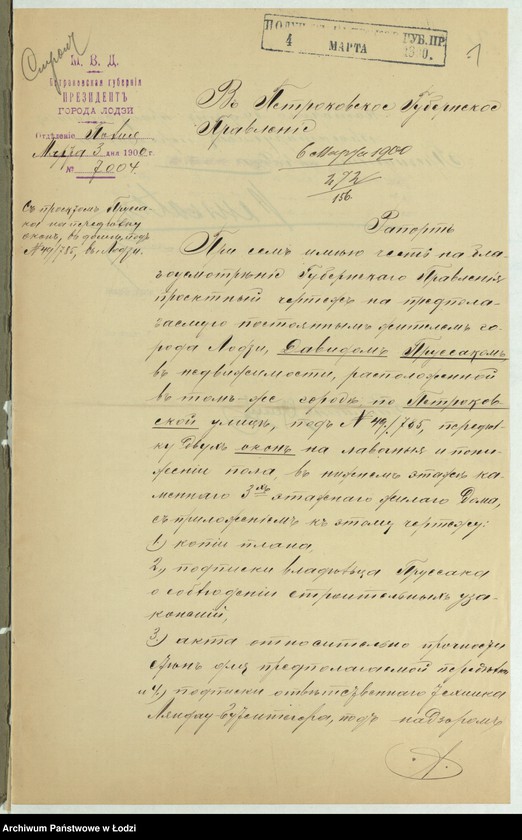 Строит
ПОЛУЧЕНО ГУБ. ПР.
4 МАРТА 1900.
1
М. В. Д.
Петроковская губернія
ПРЕЗИДЕНТЪ
ГОРОДА ЛОДЗИ
Отдѣленіе
Марта 3 дня 1900 г.
№ 7004
Съ проэктомъ Прусса-
ка на передѣлку
оконъ, въ домѣ, подъ
№ 49/785, въ г. Лодзи.
Въ Петроковское Губернское
Правленіе
6 Марта 1900
272
156.
Рапортъ
При семъ имѣю честь на бла-
гоусмотрѣніе Губернскаго Правленія
проэктный чертежъ на предпола-
гаемую постояннымъ жителемъ го-
рода Лодзи, Давидомъ Пруссакомъ
въ недвижимости, расположенной
въ томъ-же городѣ по Петроков-
ской улицѣ, подъ № 49/785, передѣл-
ку двухъ оконъ на лавочныя и пони-
женіи пола, въ нижнемъ этажѣ ка-
меннаго 3хъ этажнаго жилаго дома,
съ приложеніемъ къ этому чертежу:
1) копіи плана,
2) подписки владѣльца Пруссака
о соблюденіи строительныхъ уза-
коненій,
3) акта относительно прочности
стѣнъ для предполагаемой передѣлки
и 4) подписки отвѣтственнаго техника
Ляндау-Гутентегера, подъ надзоромъ
Archiwum Państwowe w Łodzi